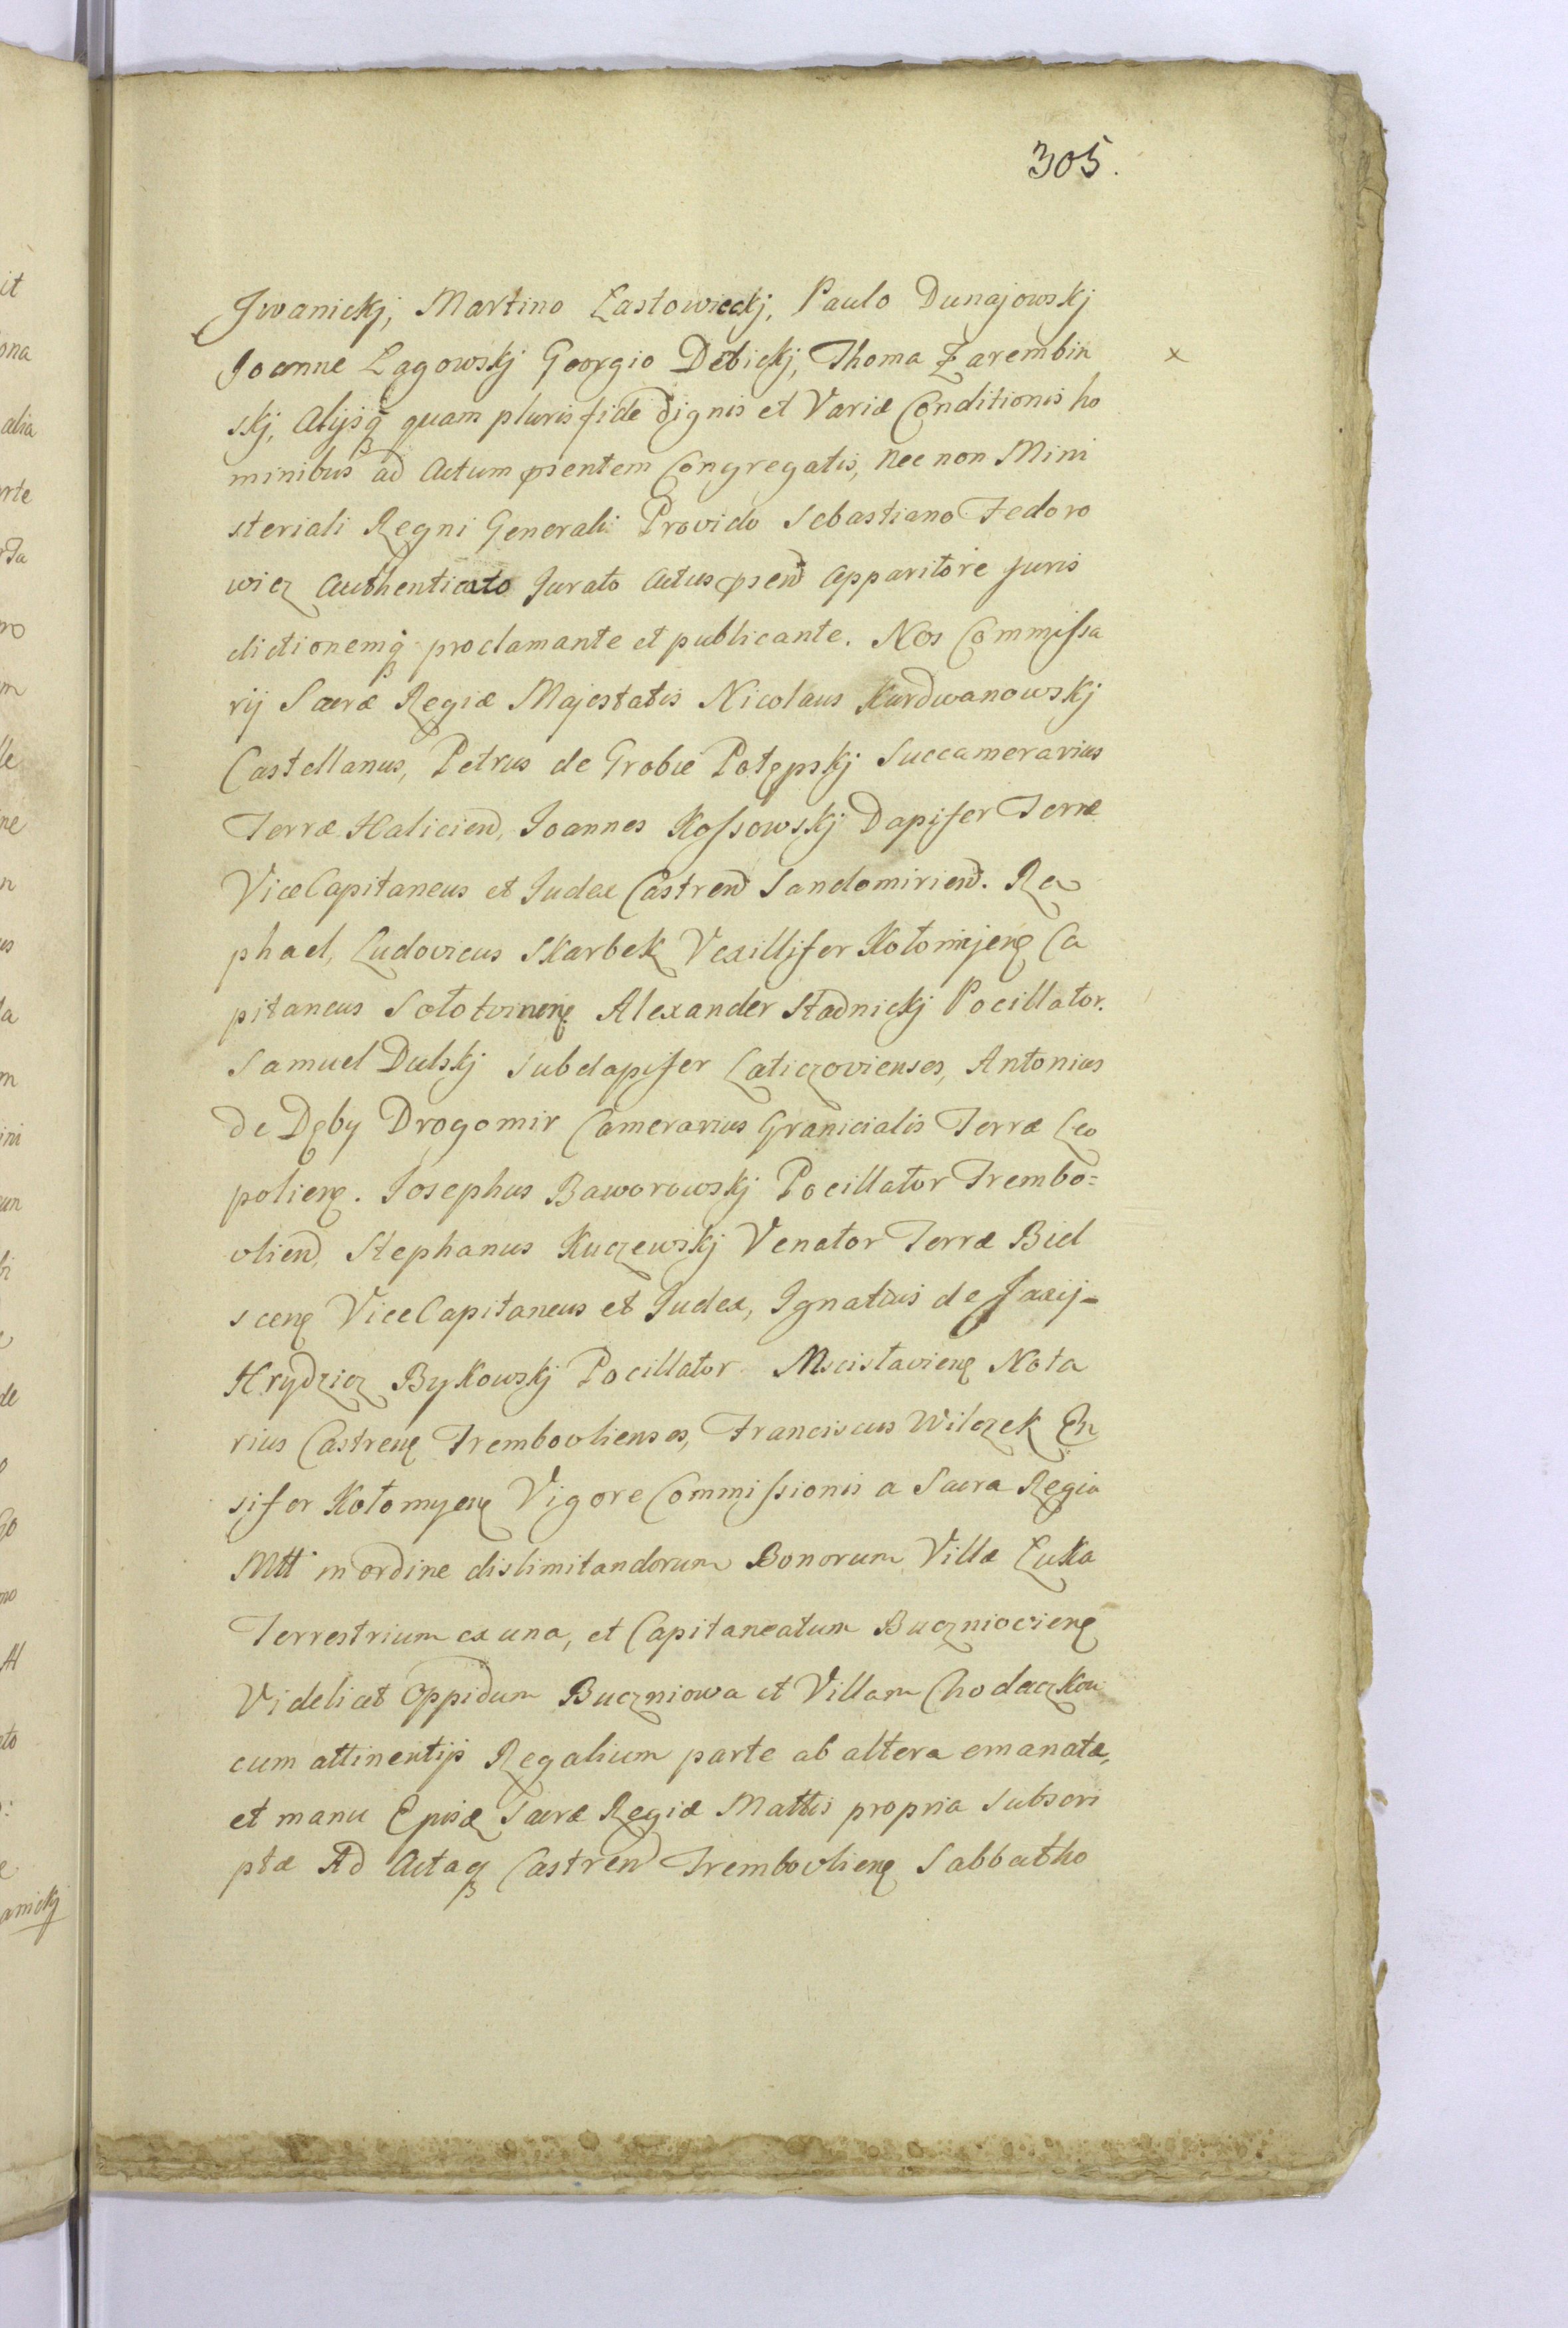 305.
Jwanickj, Martino Łastowieckj, Paulo Dunajowskj
Joanne Łagowskj Georgio Debickj, Thoma Zarembin
skj, Alijsq quam pluris fide dignis et Variæ Conditionis ho
minibus ad Actum psentem Congregatis, nec non Mini
steriali Regni Generali Provido Sebastiano Fedoro
wicz Authenticato Jurato Actus psen Apparitore Juris
dictionemq proclamante et publicante. Nos Commissa
rij Sacræ Regiæ Majestatis Nicolaus Kurdwanowskj
Castellanus, Petrus de Grobie Potępskj Succamerarius
Terræ Halicien, Joannes Kossowskj Dapifer Terræ
ViceCapitaneus et Judex Castren Sandomirien. Ra
phael, Ludovicus Skarbek Vexillifer Kołomijen Ca
pitaneus Sołotvinen Alexander Stadnickj Pocillator.
Samuel Dulskj Subdapifer Laticzovienses, Antonius
de Dęby Drogomir Camerarius Granicialis Terræ Leo
polien. Josephus Baworowskj Pocillator Trembo=
vlien, Stephanus Kuczewskj Venator Terræ Biel
scen ViceCapitaneus et Judex, Ignatius de Jaxij-
Hrydzicz Bykowskj Pocillator Mscisłavien Nota
rius Castren Trembovlienses, Franciscus Wilczek En
sifer Kołomyen Vigore Commissionis a Sacra Regia
Mtt in ordine dislimitandorum Bonorum Villæ Łuka
Terrestrium ex una, et Capitaneatum Buczniovien
Videlicet Oppidum Buczniowa et Villam Chodaczkow
cum attinentijs Regalium parte ab altera emanatæ,
et manu Ejusdæ Sacræ Regiæ Mattis propria Subscri
ptæ Ad Actaq Castren Trembovlien Sabbatho